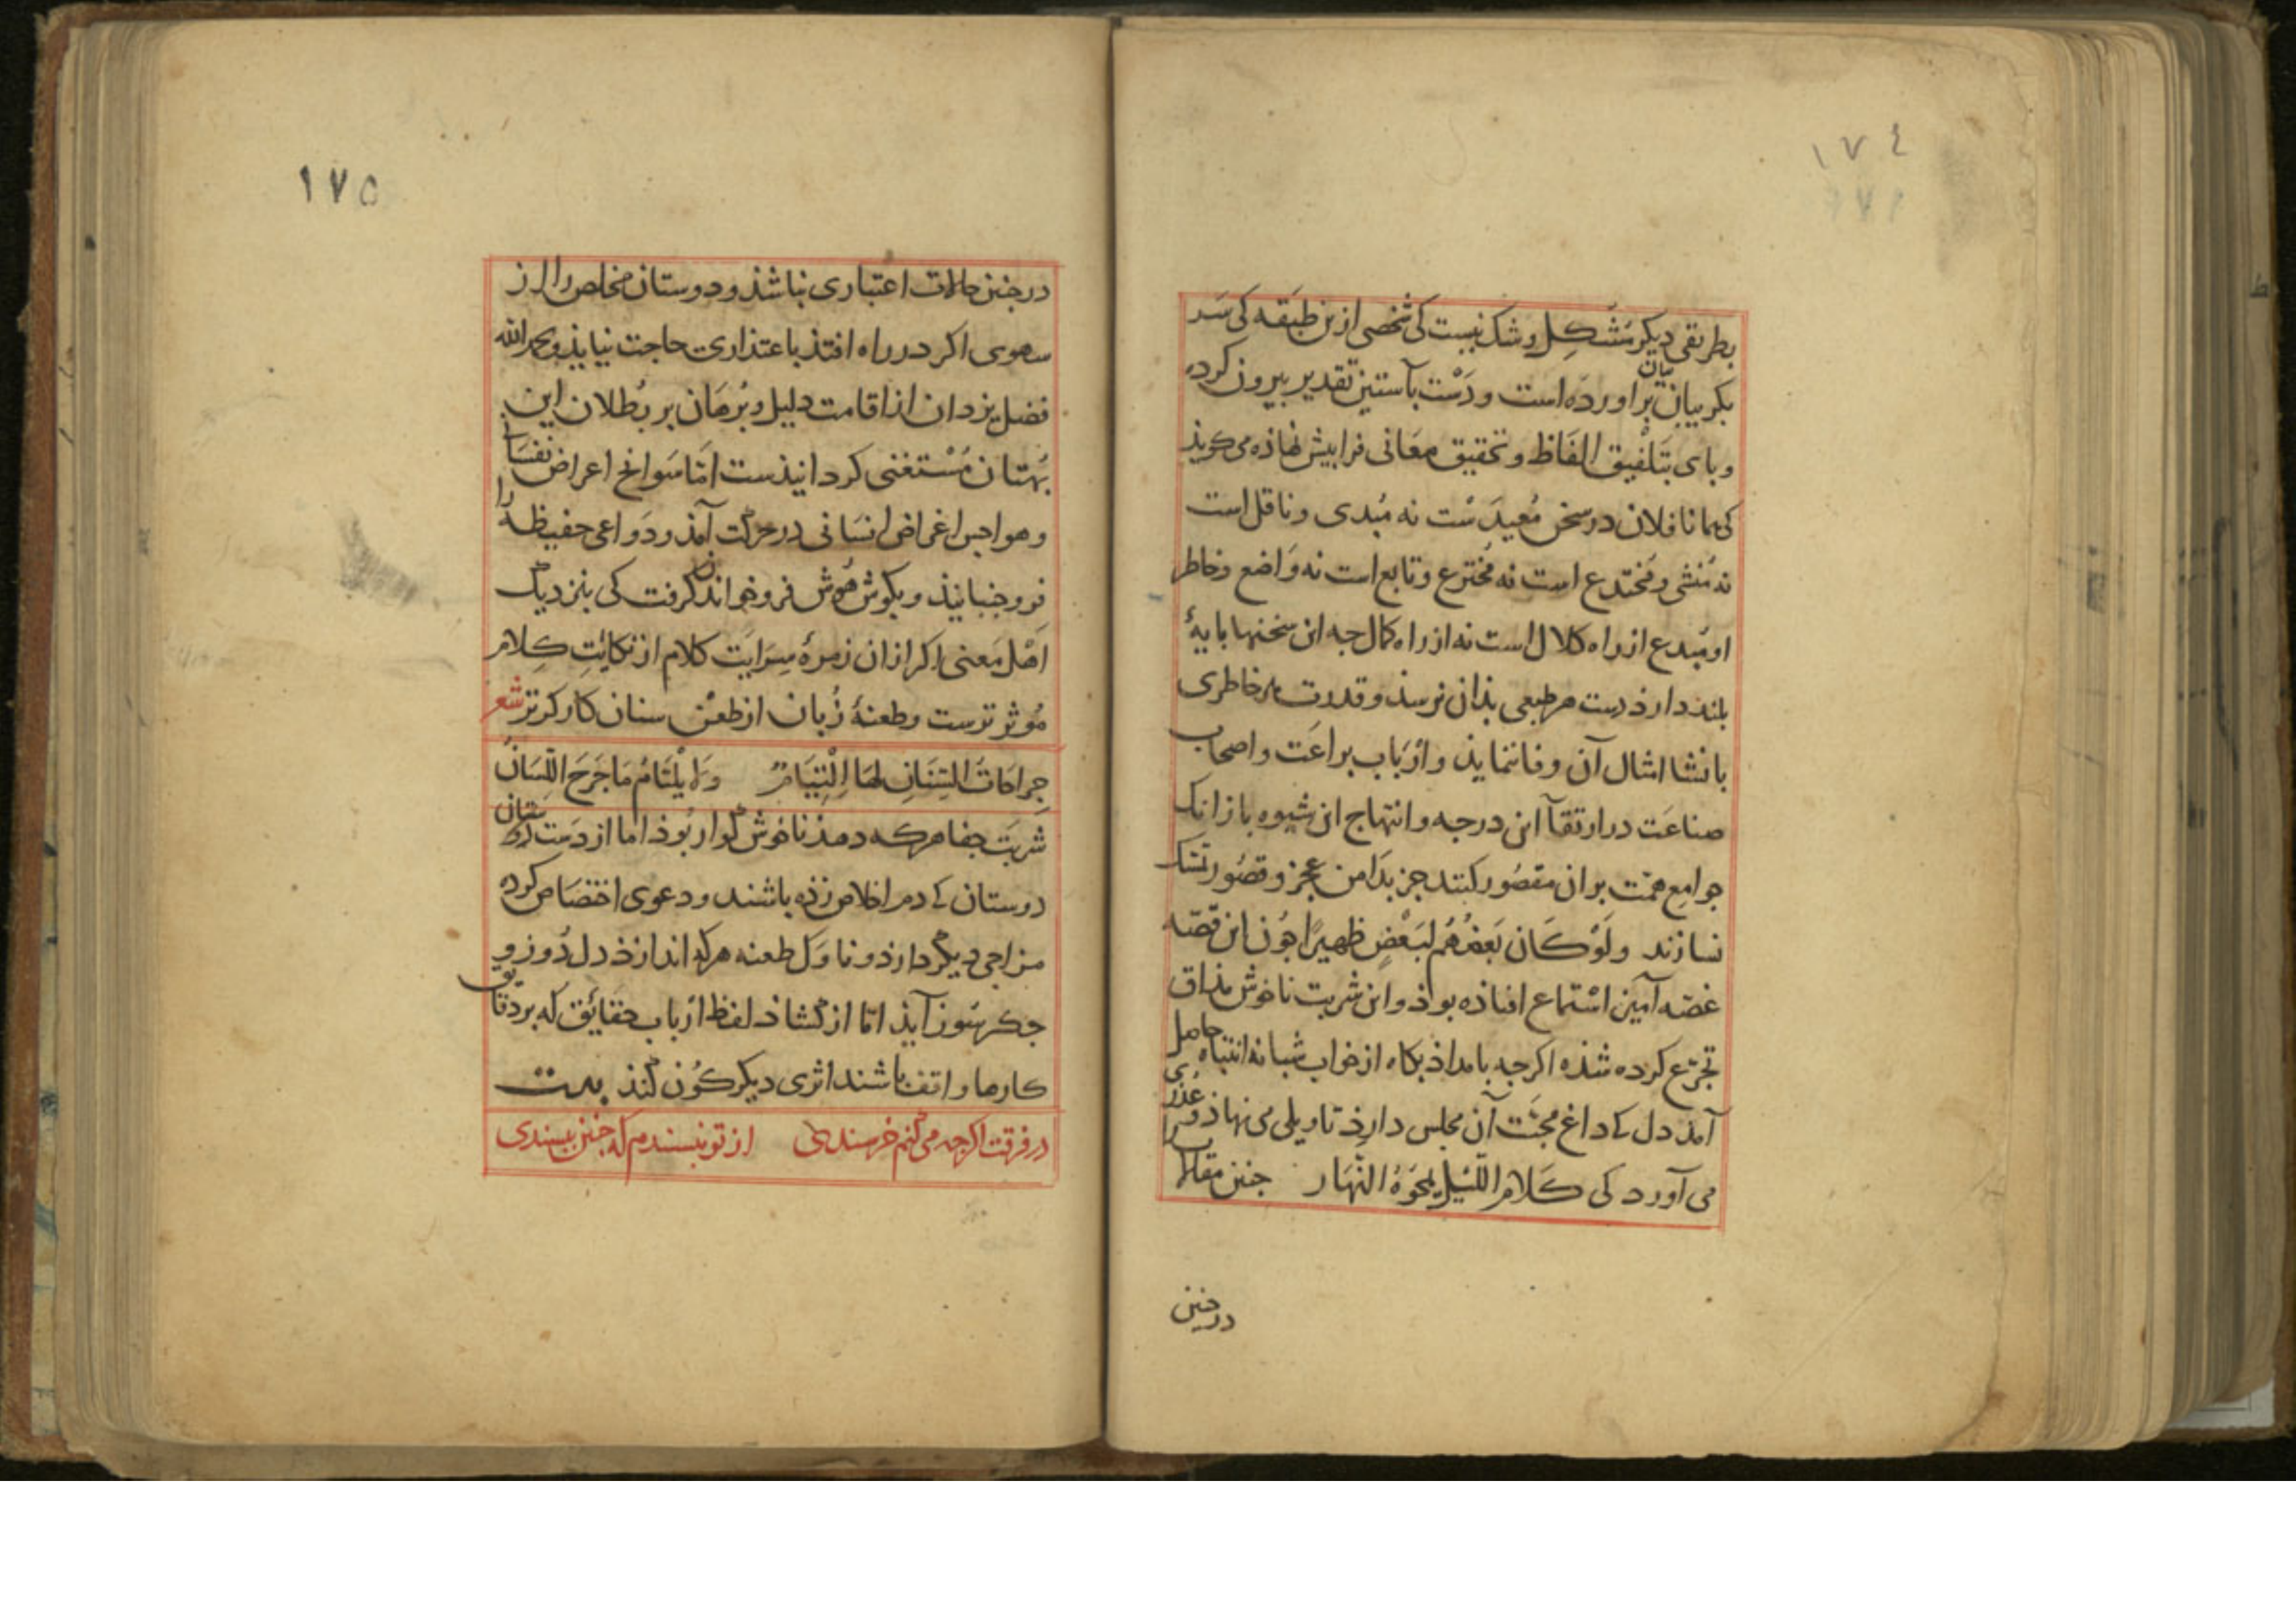 ١٧٤
بطریقی دیکر مُشکِل و شک نیست کی شخصی ازین طبَقه کی سَر
بکریبان بیان براورده است و دَسْت بآستین تقدیر بیرون کرده
و بای بتَلفیق الفَاظ و تحقیق معَانی فرا بیش نهاذه می کویذ
کی همانا فلان در سخن مُعیدَسْت نه مُبدی و ناقل است
نه مُنشی و مُختدع است نه مُخترع و تابع است نه وَاضع و خاطر
او مُبدع از راه کلال است نه از راه کمال جه این سخنها بایۀ
بلند دارذ دست هر طبعی بذان نرسذ و قدرت هر خاطری
بانشا امثال آن وفا ننمایذ و ارْبَاب براعَت و اصحاب
صناعَت در ارتقآ این درجه و انتهاج این شیوه بازانک
جوامِع همّت بران مقصُور کنند جز بدَامن عجز و قصُور تمسّک
نسازند ولَوْ كَانَ بَعضُهُم لبَعْضٍ ظهيرًا جُون این قصّه
غصّه آمیز اسْتماع افتاذه بوذ و این شربت ناخوش مذاق
تجرّع کرده شذه اکرجه بامداذ بکاه از خواب شبانه انتباه حاصل
آمذ دل کی داغ محبّت آن مجلس دارذ تاویلی می نهاذ و عذری
می آورد کی كَلامُ اللَّيْلِ يَمحُوهُ النَّهَار جنین مقالات را
در جنین
١٧٥
در جنین حالات اعتباری نباشذ و دوستان مخلص را از
سهوی اکر در راه افتذ باعتذاری حاجت نیایذ و بحمد الله
فضل یزدان از اقامت دلیل و بُرهَان بر بُطلان این
بُهتان مُسْتغنی کردانیذست امّا سَوانح اعراض نفسَانی
و هواجس اغراض انسَانی در حرکت آمذ و دَواعی حفیظه را
فرو جنبانیذ و بکوش هُوش فرو خواندن کرفت کی بنزدیک
اهْل مَعنی اکر ازان زمرۀ سِرَایَت کلام از نکایَتِ کِلام
مُوثر ترست و طعنۀ زبان از طعن سنان کارکر تر شعر
جِراحَاتُ السِّنَانِ لهَا الْتِيَامٌ وَلا يلْتَامُ مَا جَرَحَ اللِّسَانُ
شربَت جفا هرکه دهذ ناخوش کوار بُوذ اما از دَست دوستان
دوستان کی دم اخلاص زذه باشند و دعوی اختصَاص کرده
مزاجی دیکر دارذ و ناوَک طعنه هرکه اندازذ دل دُوز و
جکر سُوز آیذ امّا از کشاذ لفظ ارْباب حقائق که بر دقایق
کارها واقف باشند اثری دیکر کوُن کنذ بیت
در فرقت اکرجه می کنم خرسندی از تو نبسندم که جنین ببسندی